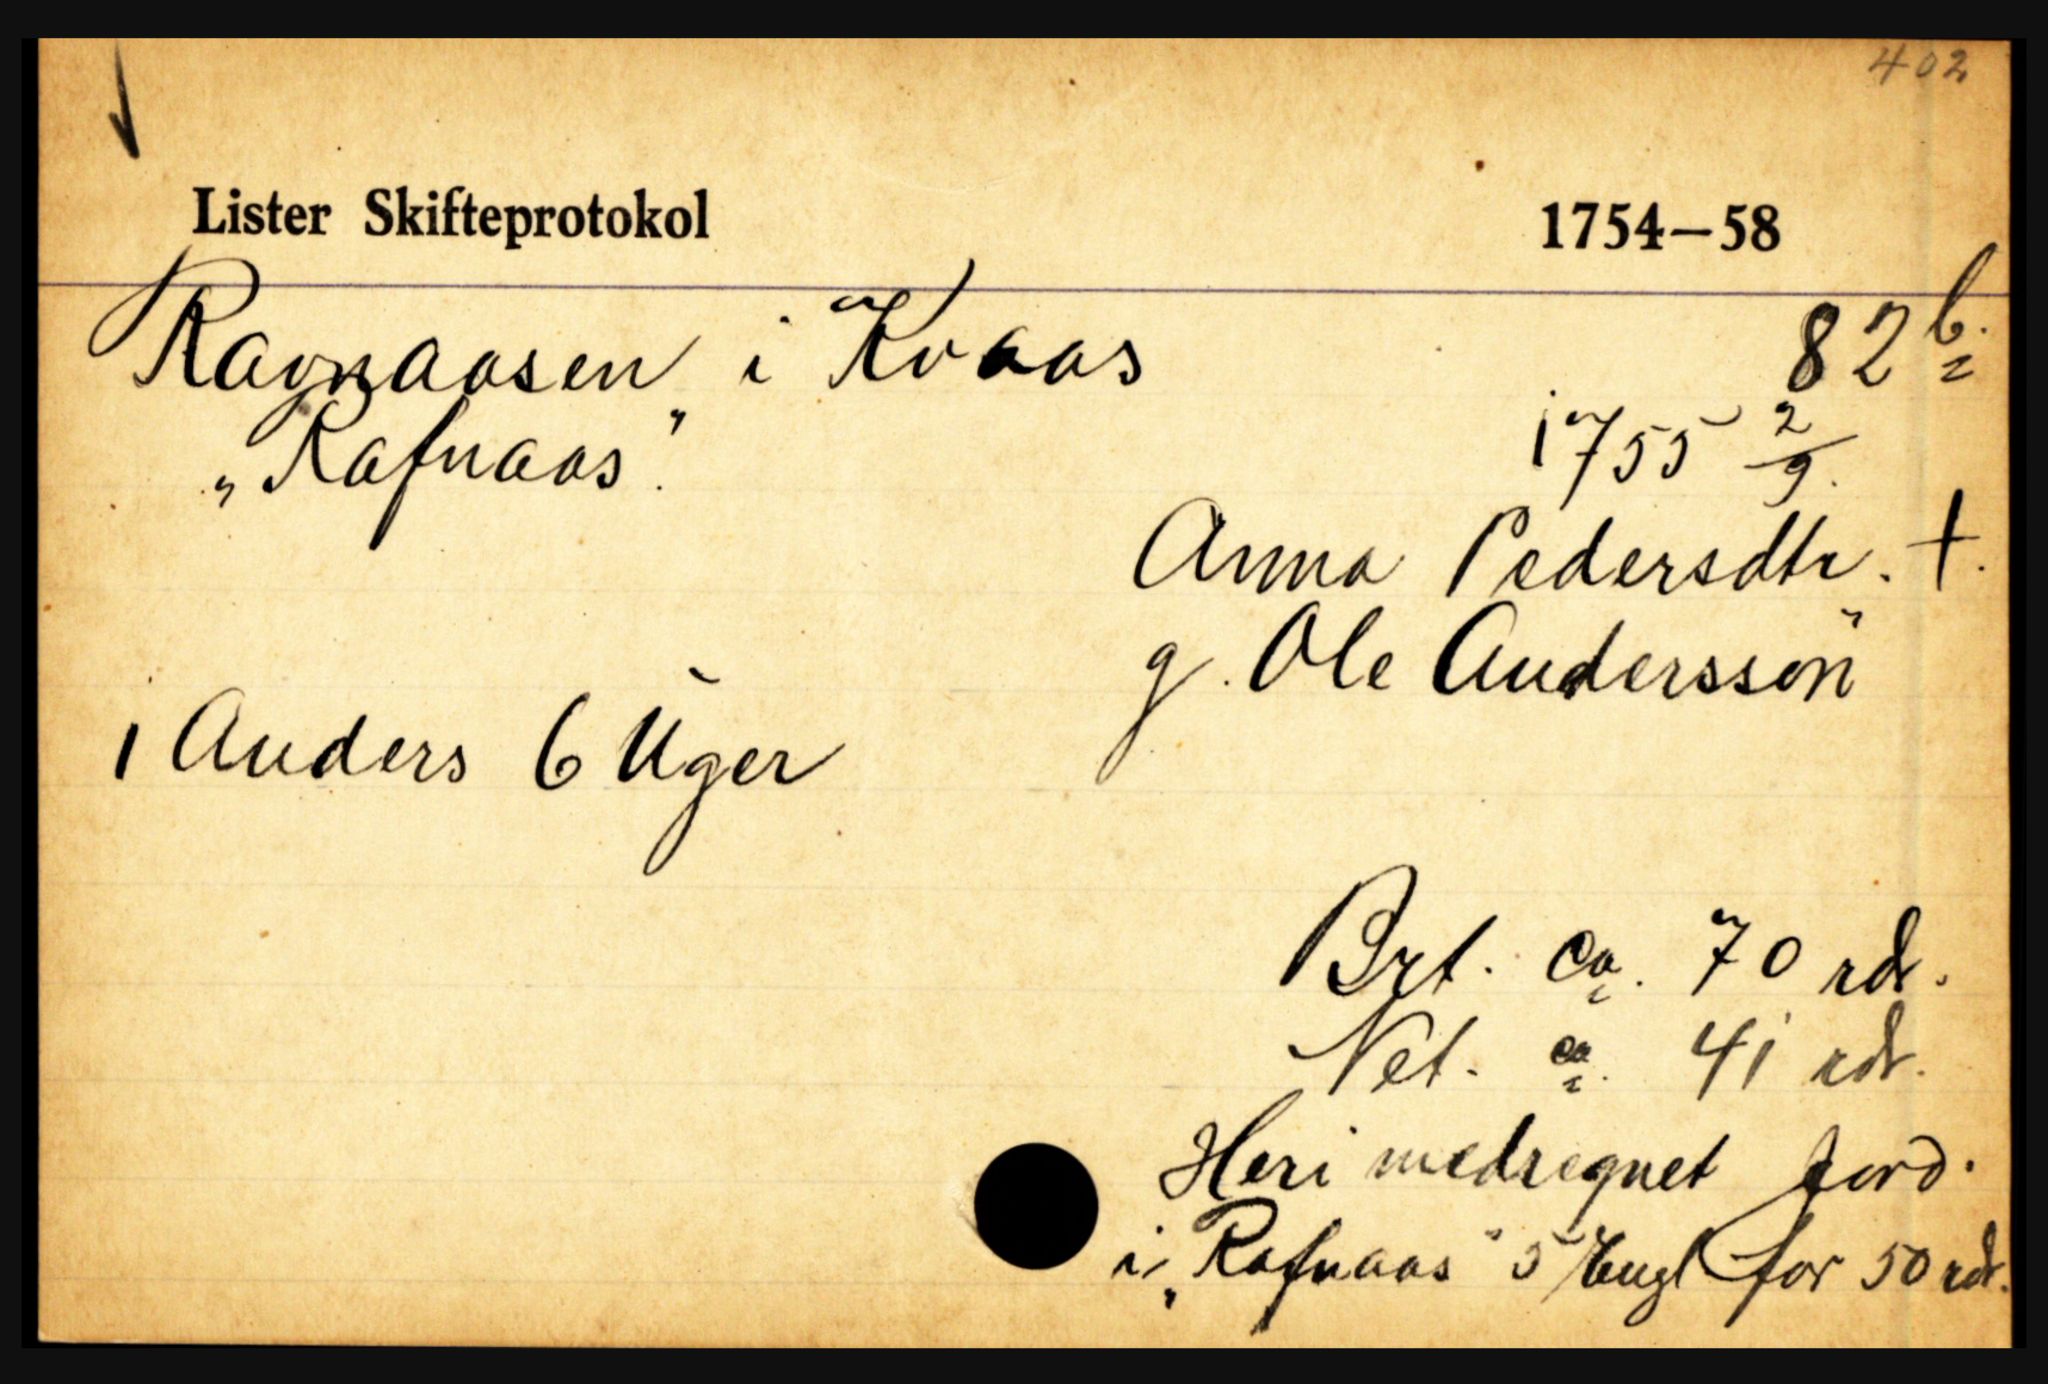 402
Lister Skifteprotokol 1754—58
Ravnaasen i Kvaas 82 b.
„Rafnaas". 1755 2/9.
Anna Pedersdtr. †.
g. Ole Andersson
1 Anders 6 Uger
Brt. ca. 70 rdr.
Net. ca. 41 rdr.
Heri medregnet jord.
i „Rafnaas" 5 Eugl for 50 rdr.